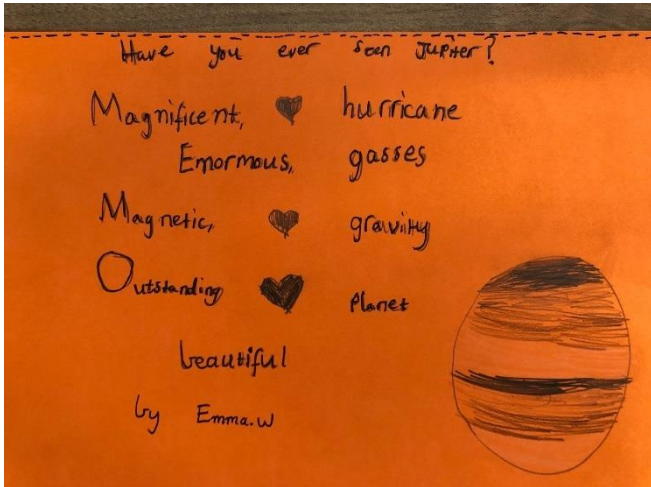 Have you ever seen Jupiter?
Magnificent, hurricane
Emormous, gasses
Magnetic, gravity
Outstanding Planet
beautiful
by Emma.W